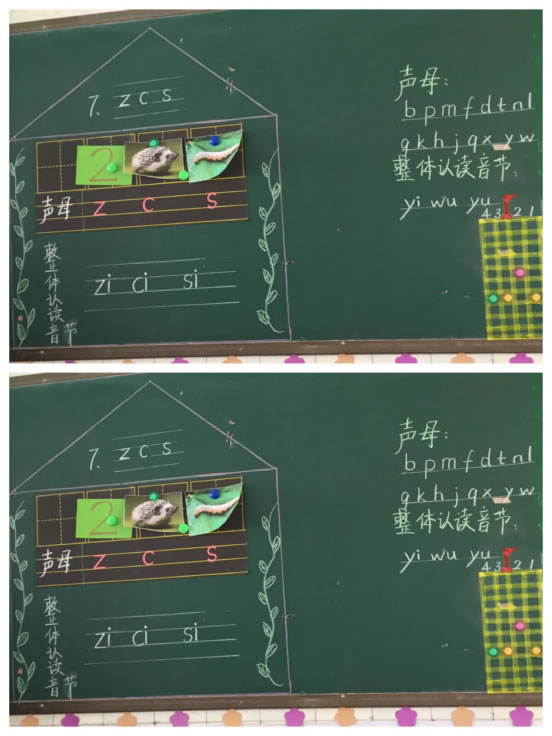 7. z c s
2
声母 z c s
整体认读音节
zi ci si
声母：
b p m f d t n l
g k h j q x y w
整体认读音节：
yi wu yu
4 3 2 1
7. z c s
2
声母 z c s
整体认读音节
zi ci si
声母：
b p m f d t n l
g k h j q x y w
整体认读音节：
yi wu yu
4 3 2 1